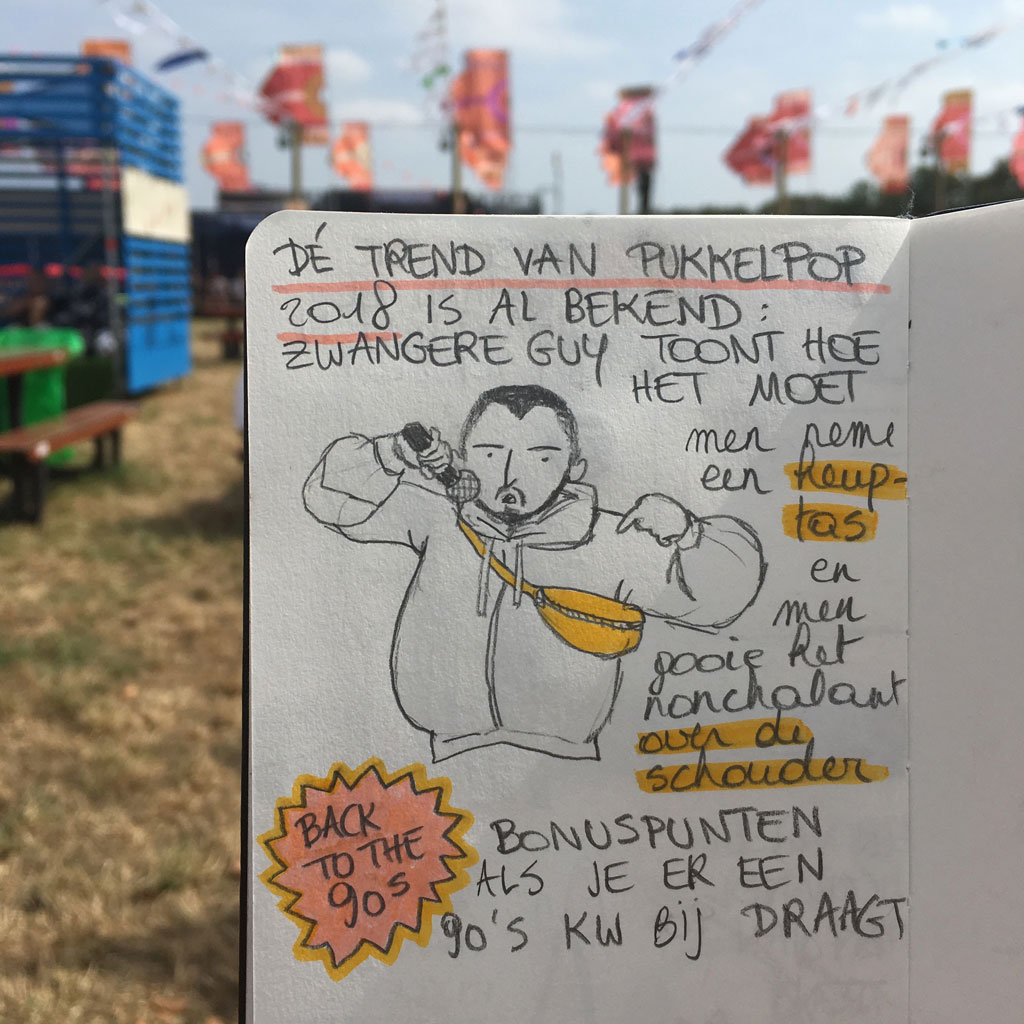 DÉ TREND VAN PUKKELPOP
2018 IS AL BEKEND:
ZWANGERE GUY TOONT HOE
HET MOET
men neme
een heup-
tas
en
men
gooie het
nonchalant
over de
schouder
BACK
TO THE
90s
BONUSPUNTEN
ALS JE ER EEN
90'S KW BIJ DRAAGT